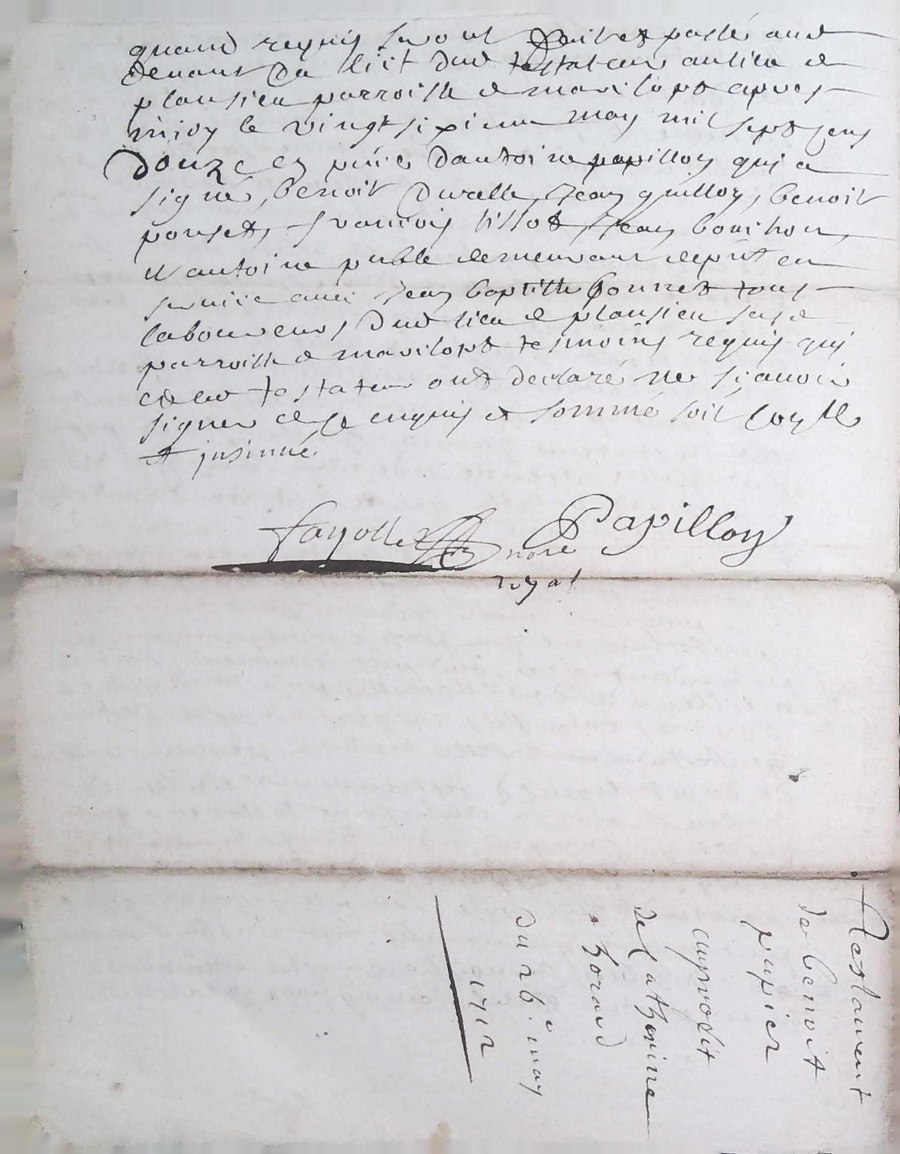 quand requis seront fait et passé aud
devant du lict dud testateur au lieu de
plansieu parroisse de marilopt apres
midy le vingt sixieme may mil sept cens
douze en pñce d'antoine papillon qui a
signé, benoit Durelle, Jean guillon, benoit
ponset, francois tissot, Jean bouchon,
et antoine demeurant en
service avec Jean baptiste tous
laboureurs dud lieu de plansieu susd
parroisse de marilopt tesmoins requis qui
et led testateur ont declaré ne scavoir
signer de ce enquis et sommé soit
et insinué.
fayolle nore Papillon
royal
Testament
de benoit
papier
auprofit
de Catherine
du 26.e may
1712